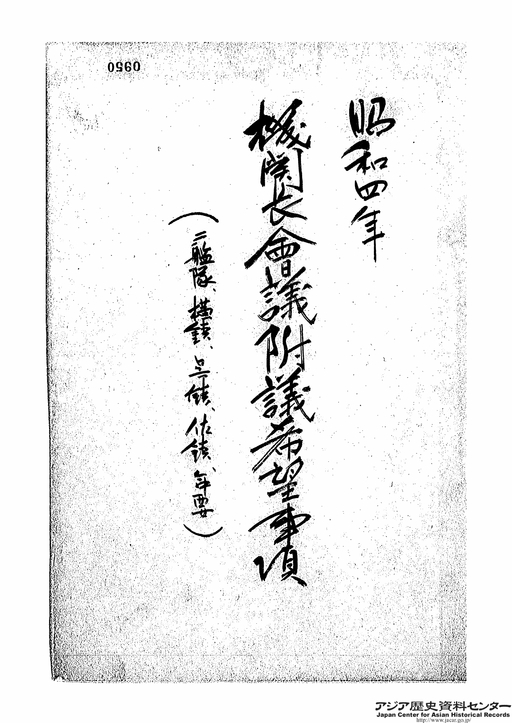 0950
昭和四年
機関長會議附議希望事項
(二艦隊、横鎮、呉鎮、佐鎮、年要)
アジア歴史資料センター
Japan Center for Asian Historical Records
http://www.jacar.go.jp